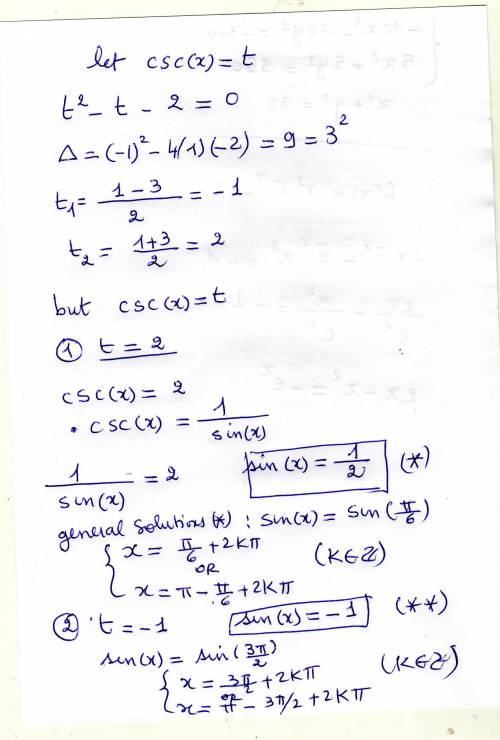 let csc(x) = t
t² - t - 2 = 0
Δ = (-1)² - 4(1)(-2) = 9 = 3²
t₁ = (1 - 3)/2 = -1
t₂ = (1+3)/2 = 2
but csc(x) = t
① t = 2
csc(x) = 2
• csc(x) = 1/sin(x)
1/sin(x) = 2 sin(x) = 1/2 (*)
general solutions (*) : sin(x) = sin(π/6)
{ x = π/6 + 2kπ
OR (K∈ℤ)
x = π - π/6 + 2kπ
② t = -1 sin(x) = -1 (**)
sin(x) = sin(3π/2)
{ x = 3π/2 + 2kπ (K∈ℤ)
or
x = π - 3π/2 + 2kπ